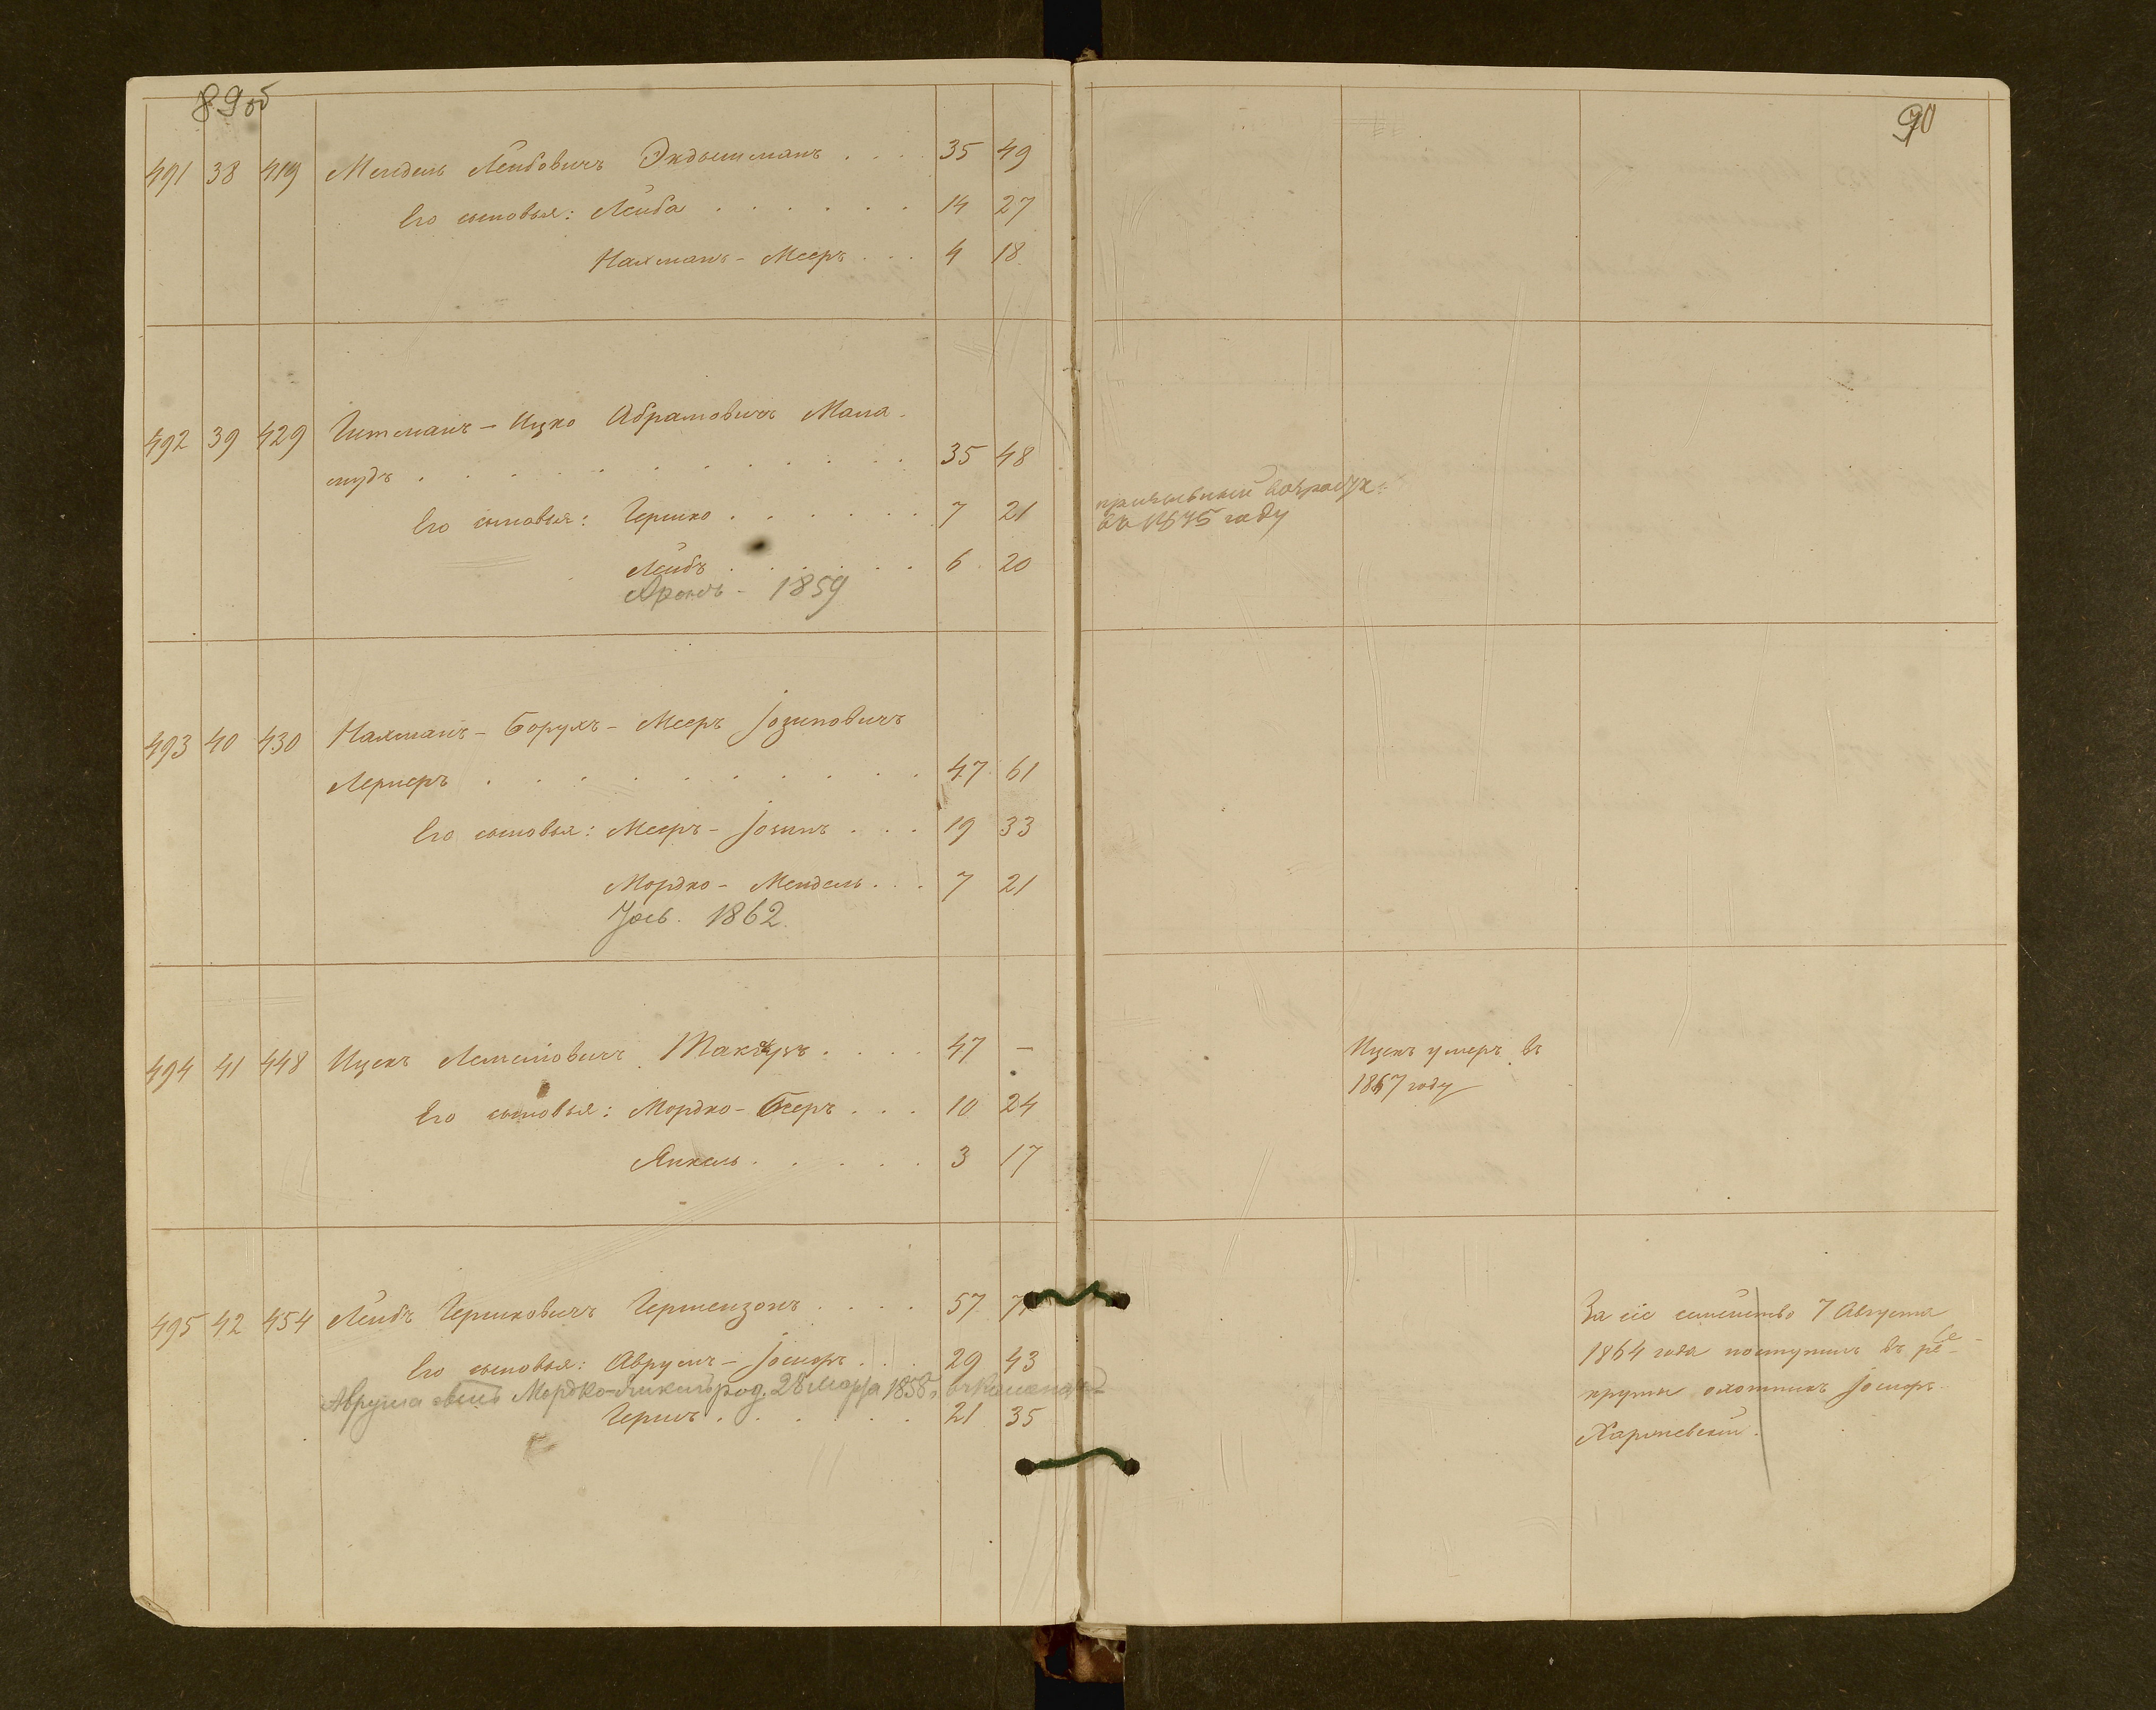 89об
491 38 419 Мендель Лейбовичъ Экдышманъ . . . . 35 49
Его сыновья: Лейба . . . . . . 14 27
Нахманъ - Мееръ . . . 4 18
492 39 429 Гитманъ - Ицко Абрамовичъ Мала-
мудъ . . . . . . . . . . . 35 48
Его сыновья: Гершко . . . . . . 7 21
Лейбъ . . . . . . 6 20
Аронъ - 1859
493 40 430 Нахманъ - Борухъ - Мееръ Іозиповичъ
Лернеръ . . . . . . . . . . 47 61
Его сыновья: Мееръ - Іозипъ . . . 19 33
Мордко - Мендель . . . 7 21
Іось. 1862.
494 41 448 Ицекъ 47 —
Его сыновья: Мордко - Бееръ . . . 10 24
Янкель . . . . . . 3 17
495 42 454 Лейбъ Гершковичъ Гершензонъ . . . . 57
Его сыновья: Аврумъ - Іосифъ . . . 29 43
Аврума сынъ Мордко-Янкель род. 28 марта 1858 г.
Гершъ . . . . . . 21 35
90
призывный
въ 1875 году
Ицекъ умеръ въ
1867 году
За сіе семейство 7 Августа
1864 года поступилъ въ ре-
круты охотникъ Іосифъ